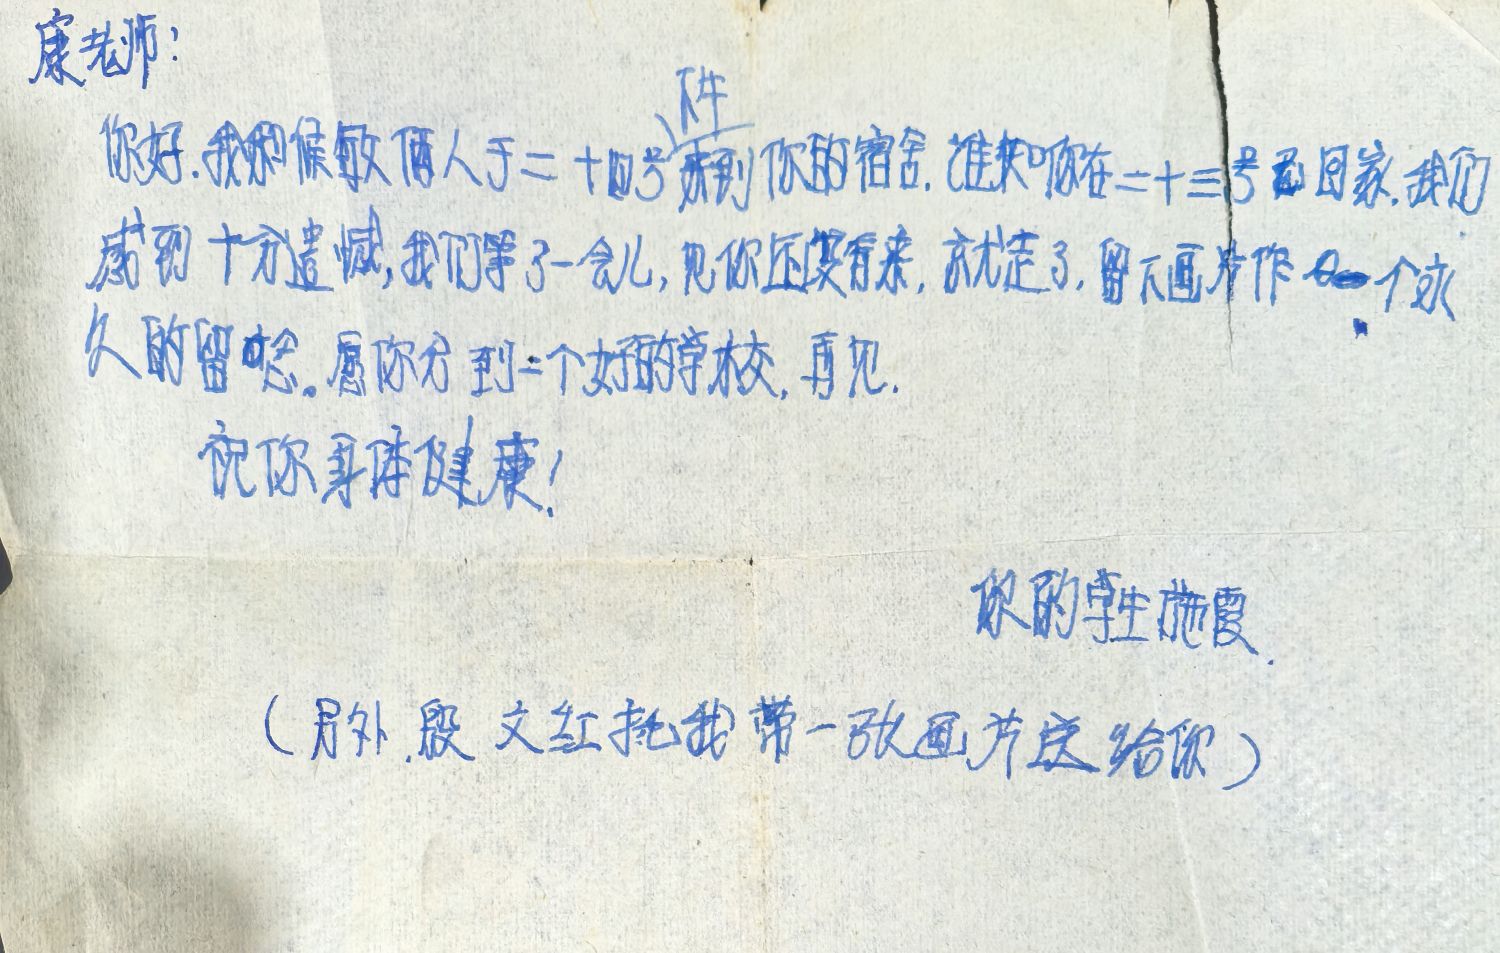 康老师:
你好.我和候敏俩人于二十四号下午来到你的宿舍.谁知你在二十三号已回家.我们
感到十分遗憾,我们等了一会儿,见你还没有来,就走了.留下画片作一个永
久的留念。愿你分到一个好的学校,再见.
祝你身体健康!
你的学生施霞.
(另外.殷文红托我带一张画片送给你)